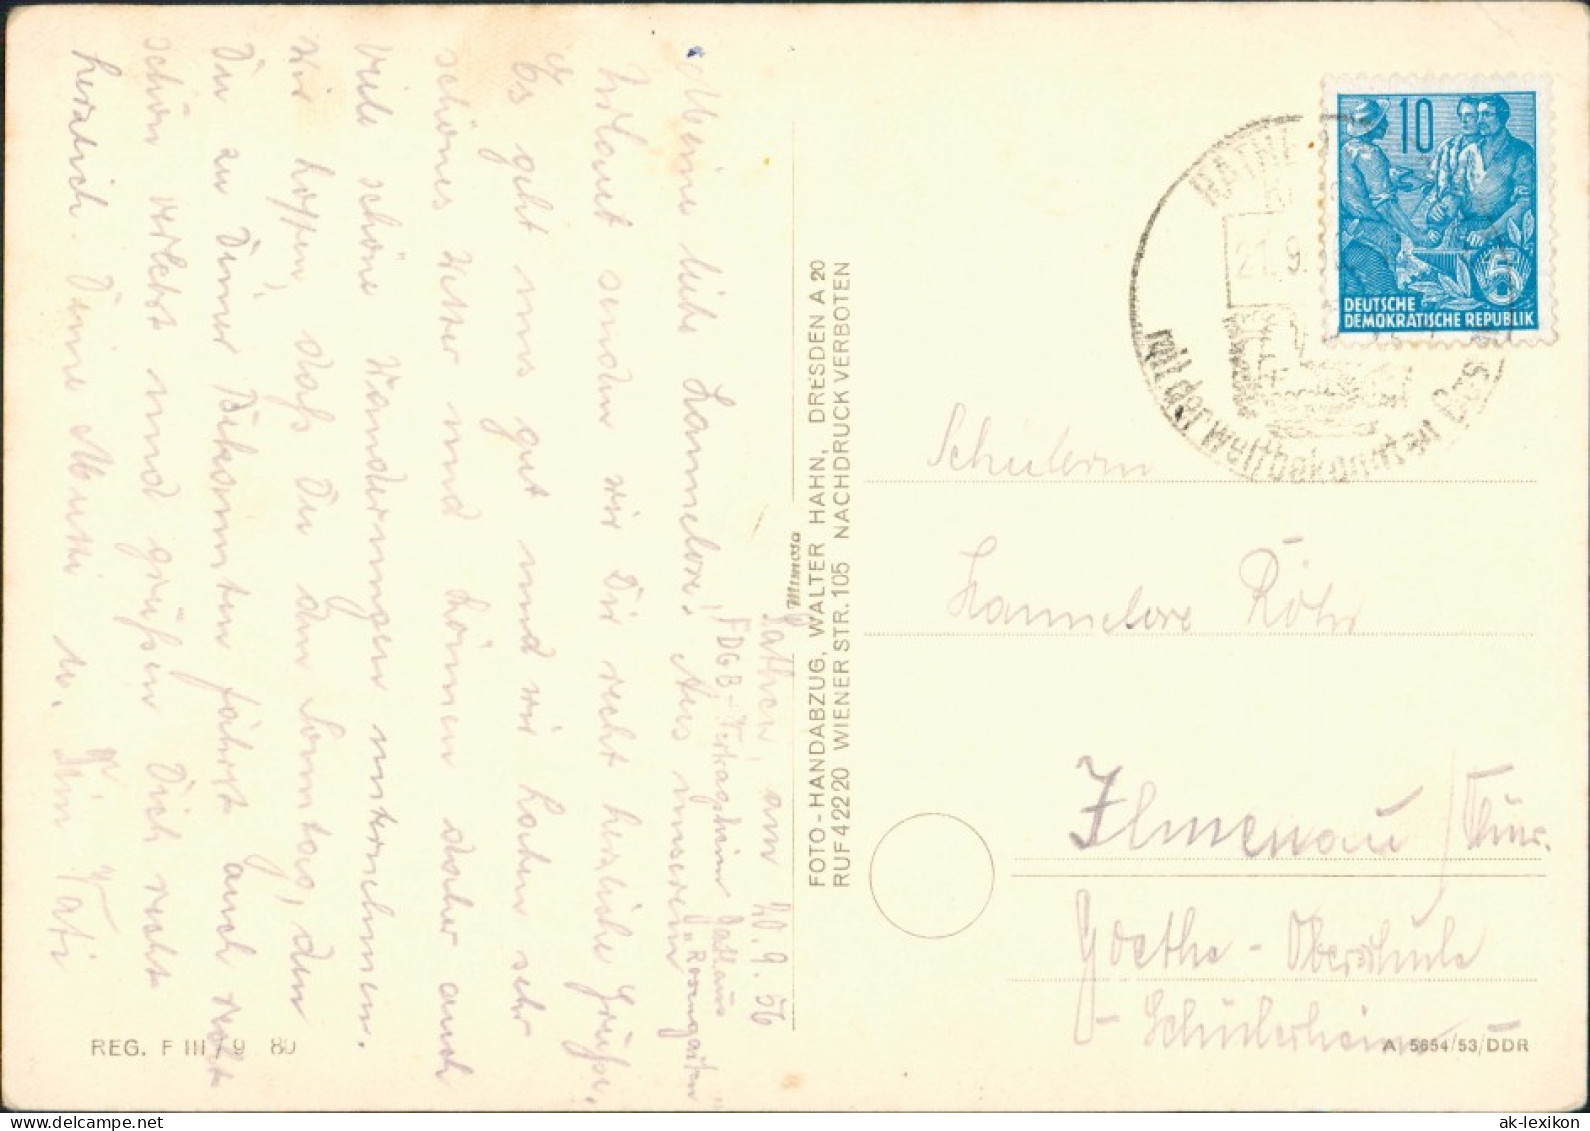 Rathen, am 20.9.56
FDGB-Vertragsheim Gasthaus
"Rosengarten"
Meine liebe Hannelore! Aus unserem
Urlaub senden wir Dir recht herzliche Grüße.
Es geht uns gut und wir haben sehr
schönes Wetter und können daher auch
viele schöne Wanderungen unternehmen.
Wir hoffen, daß Du den Sonntag, den
Du zu Deinen Bekannten fährst auch recht
schön verlebst und grüßen Dich recht
herzlich Deine Mutti u. Dein Vati
REG. F III / 9 80
Mimosa
FOTO-HANDABZUG, WALTER HAHN, DRESDEN A 20
RUF 42220 WIENER STR. 105 NACHDRUCK VERBOTEN
10
5
DEUTSCHE
DEMOKRATISCHE REPUBLIK
RATHE
21.9.
mit der weltbekannten Bas
Schülerin
Hannelore Röhr
Ilmenau / Thür.
Goethe-Oberschule
- Schülerheim -
A 5654/53/DDR
ak-lexikon